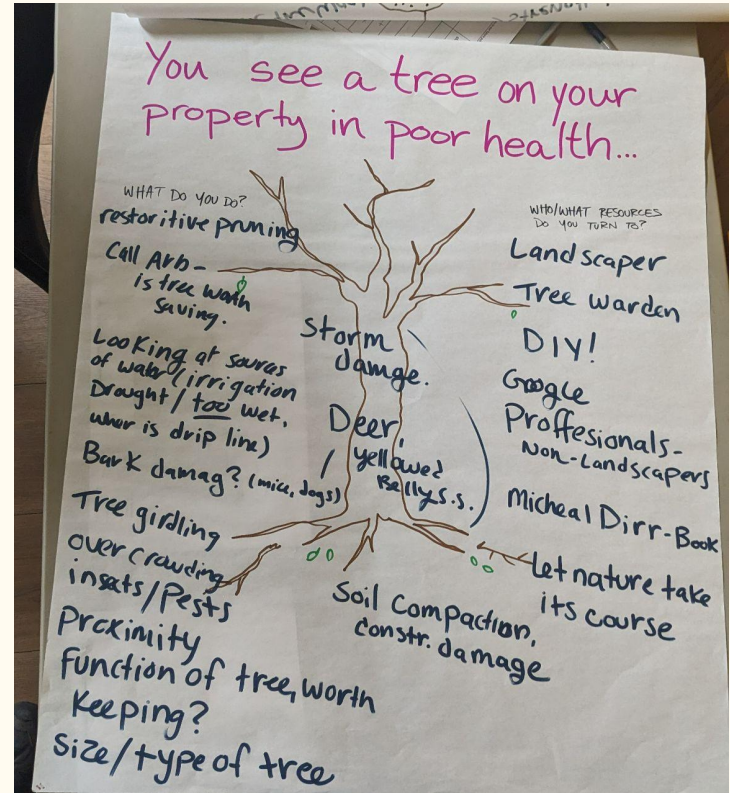 You see a tree on your
property in poor health...
WHAT DO YOU DO?
restoritive pruning
Call Arb-
is tree worth
saving.
Looking at sources
of water (irrigation
Drought / too wet,
wher is drip line)
Bark damag? (mice, dogs)
Tree girdling
overcrowding
insats/Pests
Proximity
Function of tree, worth
Keeping?
Size/type of tree
Storm
damge.
Deer,
yellowed
Belly S.S.
Soil Compaction,
constr. damage
WHO/WHAT RESOURCES
DO YOU TURN TO?
Landscaper
Tree warden
DIY!
Google
Proffesionals-
Non-Landscapers
Micheal Dirr-Book
Let nature take
its course